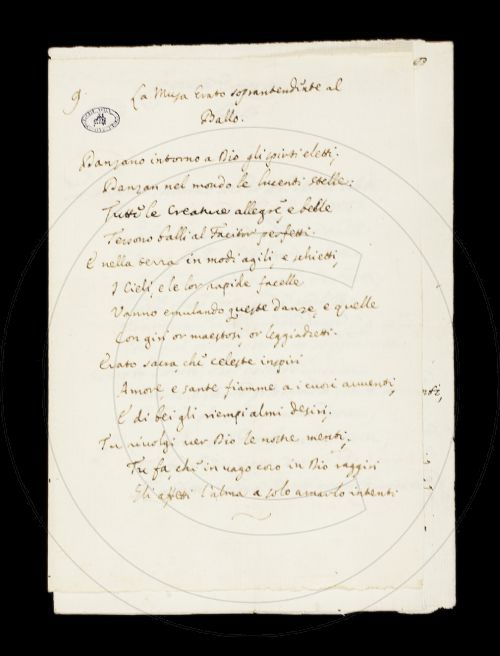 9.
La Musa Erato soprantendente al
Ballo.
Danzano intorno a Dio gli spirti eletti;
Danzan nel mondo le lucenti stelle:
Tutte le Creature allegre, e belle
Tessono balli al Facitor perfetti.
E nella terra in modi agili, e schietti,
I Cieli, e le lor rapide facelle
Vanno emulando queste danze, e quelle
Con giri or maestosi, or leggiadretti.
Erato sacra, che celeste inspiri
Amore e sante fiamme a i cuori avventi,
E di bei gli riempi almi desiri,
Tu rivolgi ver Dio le nostre menti;
Tu fa, che in vago coro in Dio raggiri
Gli affetti l'alma a solo amarlo intenti